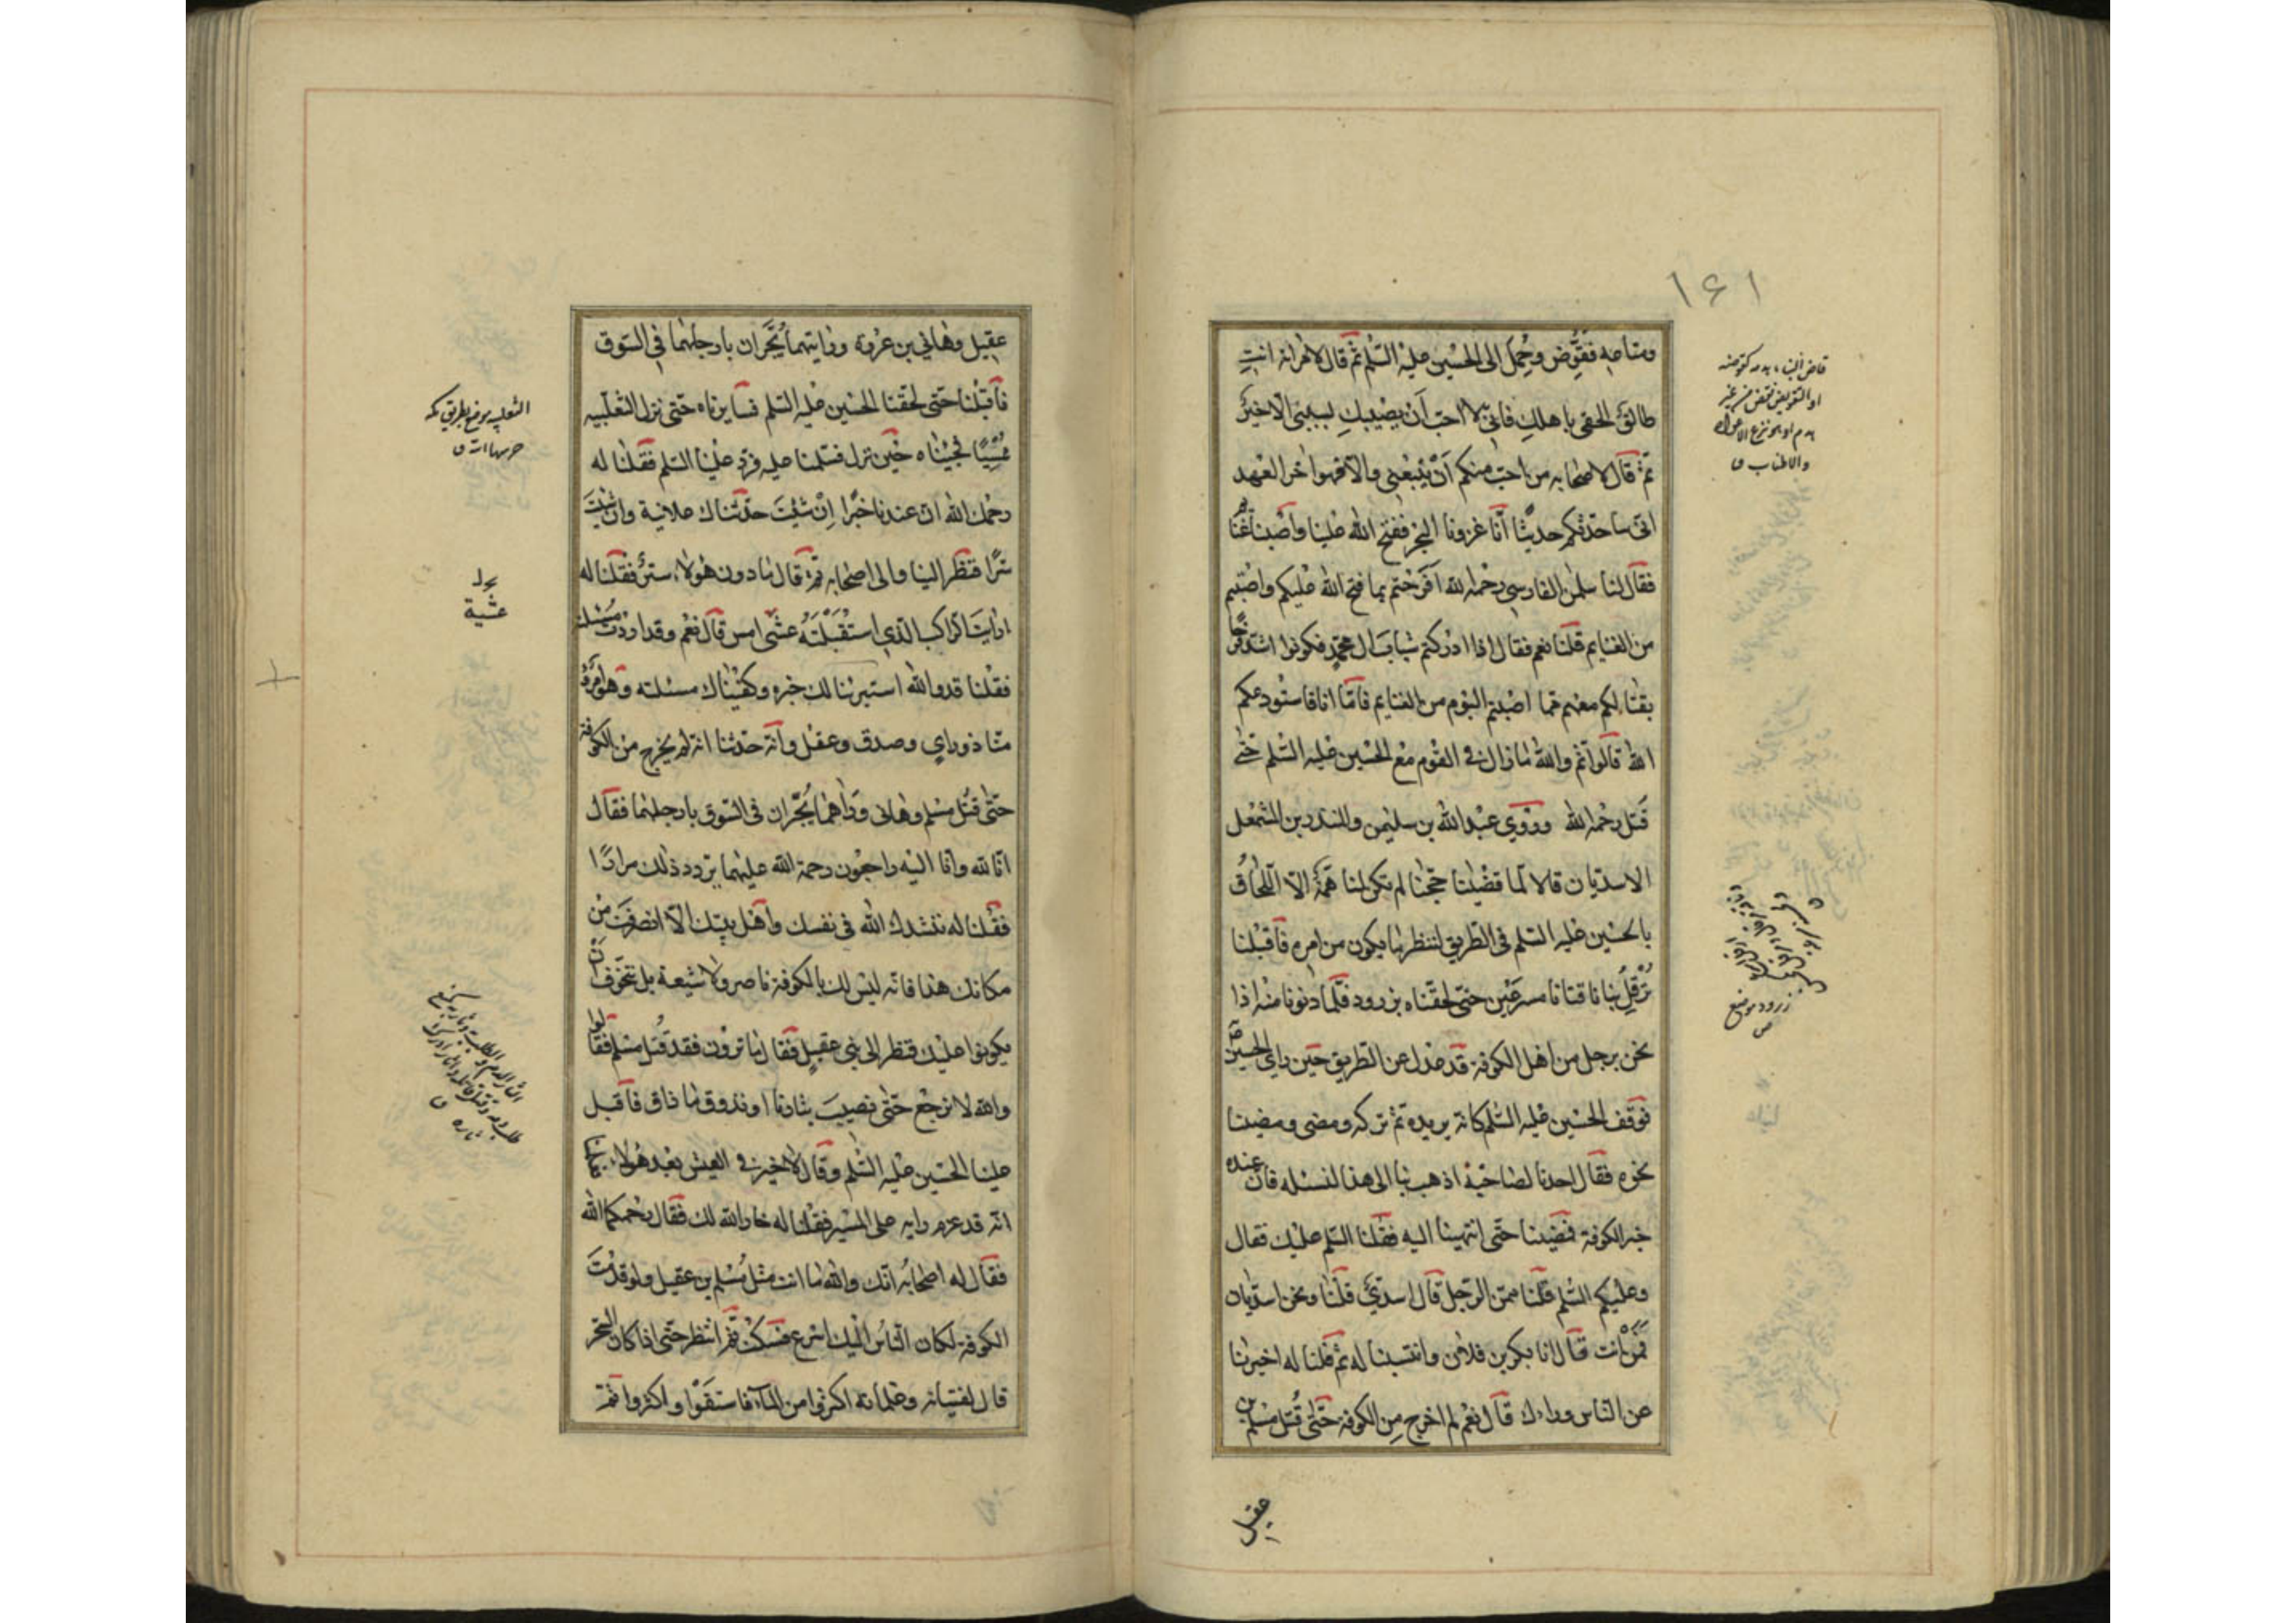 ١٤١
ومتاعه فقوّض وحُمل الى الحسين عليه السّلم ثمّ قال لامرأته انتِ
طالقٌ الحقى باهلكِ فانّى لا احبّ اَنْ يصيبكِ بسببى الّا خيرٌ
ثمّ قال لاصحابه من احبّ منكم اَنْ يتبعنى والّا فهو اخر العهد
انّى ساحدّثكم حديثًا اَنّا غزونا البحر ففتح الله علينا واصبنا غنائم
فقال لنا سلمن الفارسى رحمه الله اَفرحتم بما فتح الله عليكم واصبتم
من الغنايم قلنا نعم فقال اذا ادركتم شباب ال محمّد فكونوا اشدّ فرحًا
بقتالكم معهم ممّا اصبتم اليوم من الغنايم فامّا انا فاستودعكم
الله قالوا ثمّ والله ما زال فى القوم مع الحسين عليه السّلم حتّى
قُتل رحمه الله وروى عبد الله بن سليمن والمنذر بن المشمعل
الاسديّان قالا لمّا قضينا حجّنا لم تكن لنا همّة الّا اللّحاق
بالحسين عليه السّلم فى الطّريق لننظر ما يكون من امره فاقبلنا
تُرْقِلُ بنا ناقتانا مسرعَيْن حتّى لحقناه بزرود فلمّا دنونا منه اذا
نحن برجل من اهل الكوفة قد عدل عن الطّريق حين راى الحسين
فوقف الحسين عليه السّلم كانّه يريده ثمّ تركه ومضى ومضينا
نحوه فقال احدنا لصاحبه اذهب بنا الى هذا لنسئله فانّ عنده
خبر الكوفة فمضينا حتّى انتهينا اليه فقلنا السّلم عليك فقال
وعليكم السّلم قلنا ممّن الرّجل قال اسدىّ قلنا ونحن اسديّان
فمن انت قال انا بكر بن فلان وانتسبنا له ثمّ قلنا له اخبرنا
عن النّاس وراءك قال نعم لم اخرج من الكوفة حتّى قُتل مسلم بن
عقيل
زرود موضع
عقيل وهانى بن عروة ورايتهما يُجَرّان بارجلهما فى السّوق
فاقبلنا حتّى لحقنا الحسين عليه السّلم فسايرناه حتّى نزل الثّعلبيه
مُمْسِيًا فجئناه حين نزل فسلّمنا عليه فردّ علينا السّلم فقلنا له
رحمك الله انّ عندنا خبرًا اِنْ شئتَ حدّثناك علانية وان شئتَ
سرًّا فنظر الينا والى اصحابه ثمّ قال ما دون هؤلاء سترٌ فقلنا له
ارايتَ الرّاكب الّذى استقبلتَهُ عشىّ امس قال نعم وقد اردت مسئلته
فقلنا قد والله استبرئنا لك خبره وكفيناك مسئلته وهو امرؤ
منّا ذو راى وصدق وعقل وانّه حدّثنا انّه لم يخرج من الكوفة
حتّى قُتل مسلم وهانى وراهما يُجَرّان فى السّوق بارجلهما فقال
انّا لله وانّا اليه راجعون رحمة الله عليهما يردّد ذلك مرارًا
فقلنا له ننشدك الله فى نفسك واهل بيتك الّا انصرفت من
مكانك هذا فانّه ليس لك بالكوفة ناصر ولا شيعة بل نتخوّف ان
يكونوا عليك فنظر الى بنى عقيل فقال ما ترون فقد قُتل مسلم فقالوا
والله لا نرجع حتّى نصيب بثارنا او نذوق ما ذاق فاقبل
علينا الحسين عليه السّلم وقال لا خير فى العيش بعد هؤلاء فعلمنا
انّه قد عزم رايه على المسير فقلنا له خار الله لك فقال رحمكما الله
فقال له اصحابه انّك والله ما انت مثل مسلم بن عقيل ولو قدمت
الكوفة لكان النّاس اليك اسرع فسكت ثمّ انتظر حتّى اذا كان السّحر
قال لفتيانه وغلمانه اكثروا من الماء فاستقوا واكثروا ثمّ
الثعلبيه موضع بطريق مكه
حرسها الله ق
عشية